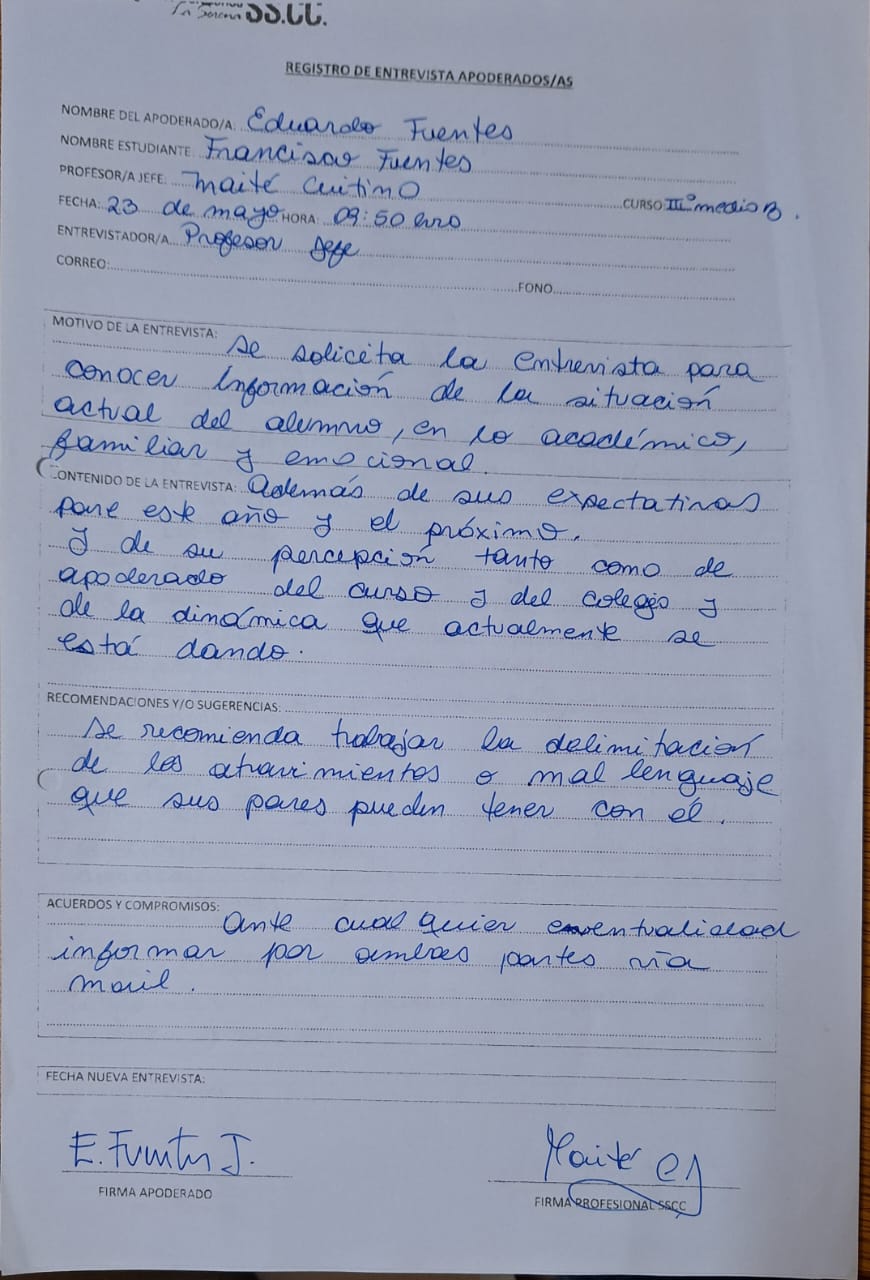 La Serena SS.CC.
REGISTRO DE ENTREVISTA APODERADOS/AS
NOMBRE DEL APODERADO/A: Eduardo Fuentes
NOMBRE ESTUDIANTE: Francisco Fuentes
PROFESOR/A JEFE: Maité Cuitino CURSO IIIº medio B.
FECHA: 23 de mayo HORA: 09:50 hrs
ENTREVISTADOR/A Profesor Jefe
CORREO: FONO
MOTIVO DE LA ENTREVISTA: Se solicita la entrevista para
conocer información de la situación
actual del alumno, en lo académico,
familiar y emocional.
CONTENIDO DE LA ENTREVISTA: Además de sus expectativas
para este año y el próximo.
Y de su percepción tanto como de
apoderado del curso y del colegio y
de la dinámica que actualmente se
está dando.
RECOMENDACIONES Y/O SUGERENCIAS:
Se recomienda trabajar la delimitación
de los atrevimientos o mal lenguaje
que sus pares pueden tener con él.
ACUERDOS Y COMPROMISOS: Ante cualquier eventualidad
informar por ambas partes vía
mail.
FECHA NUEVA ENTREVISTA:
E. Fuentes J. Maité
FIRMA APODERADO FIRMA PROFESIONAL SSCC